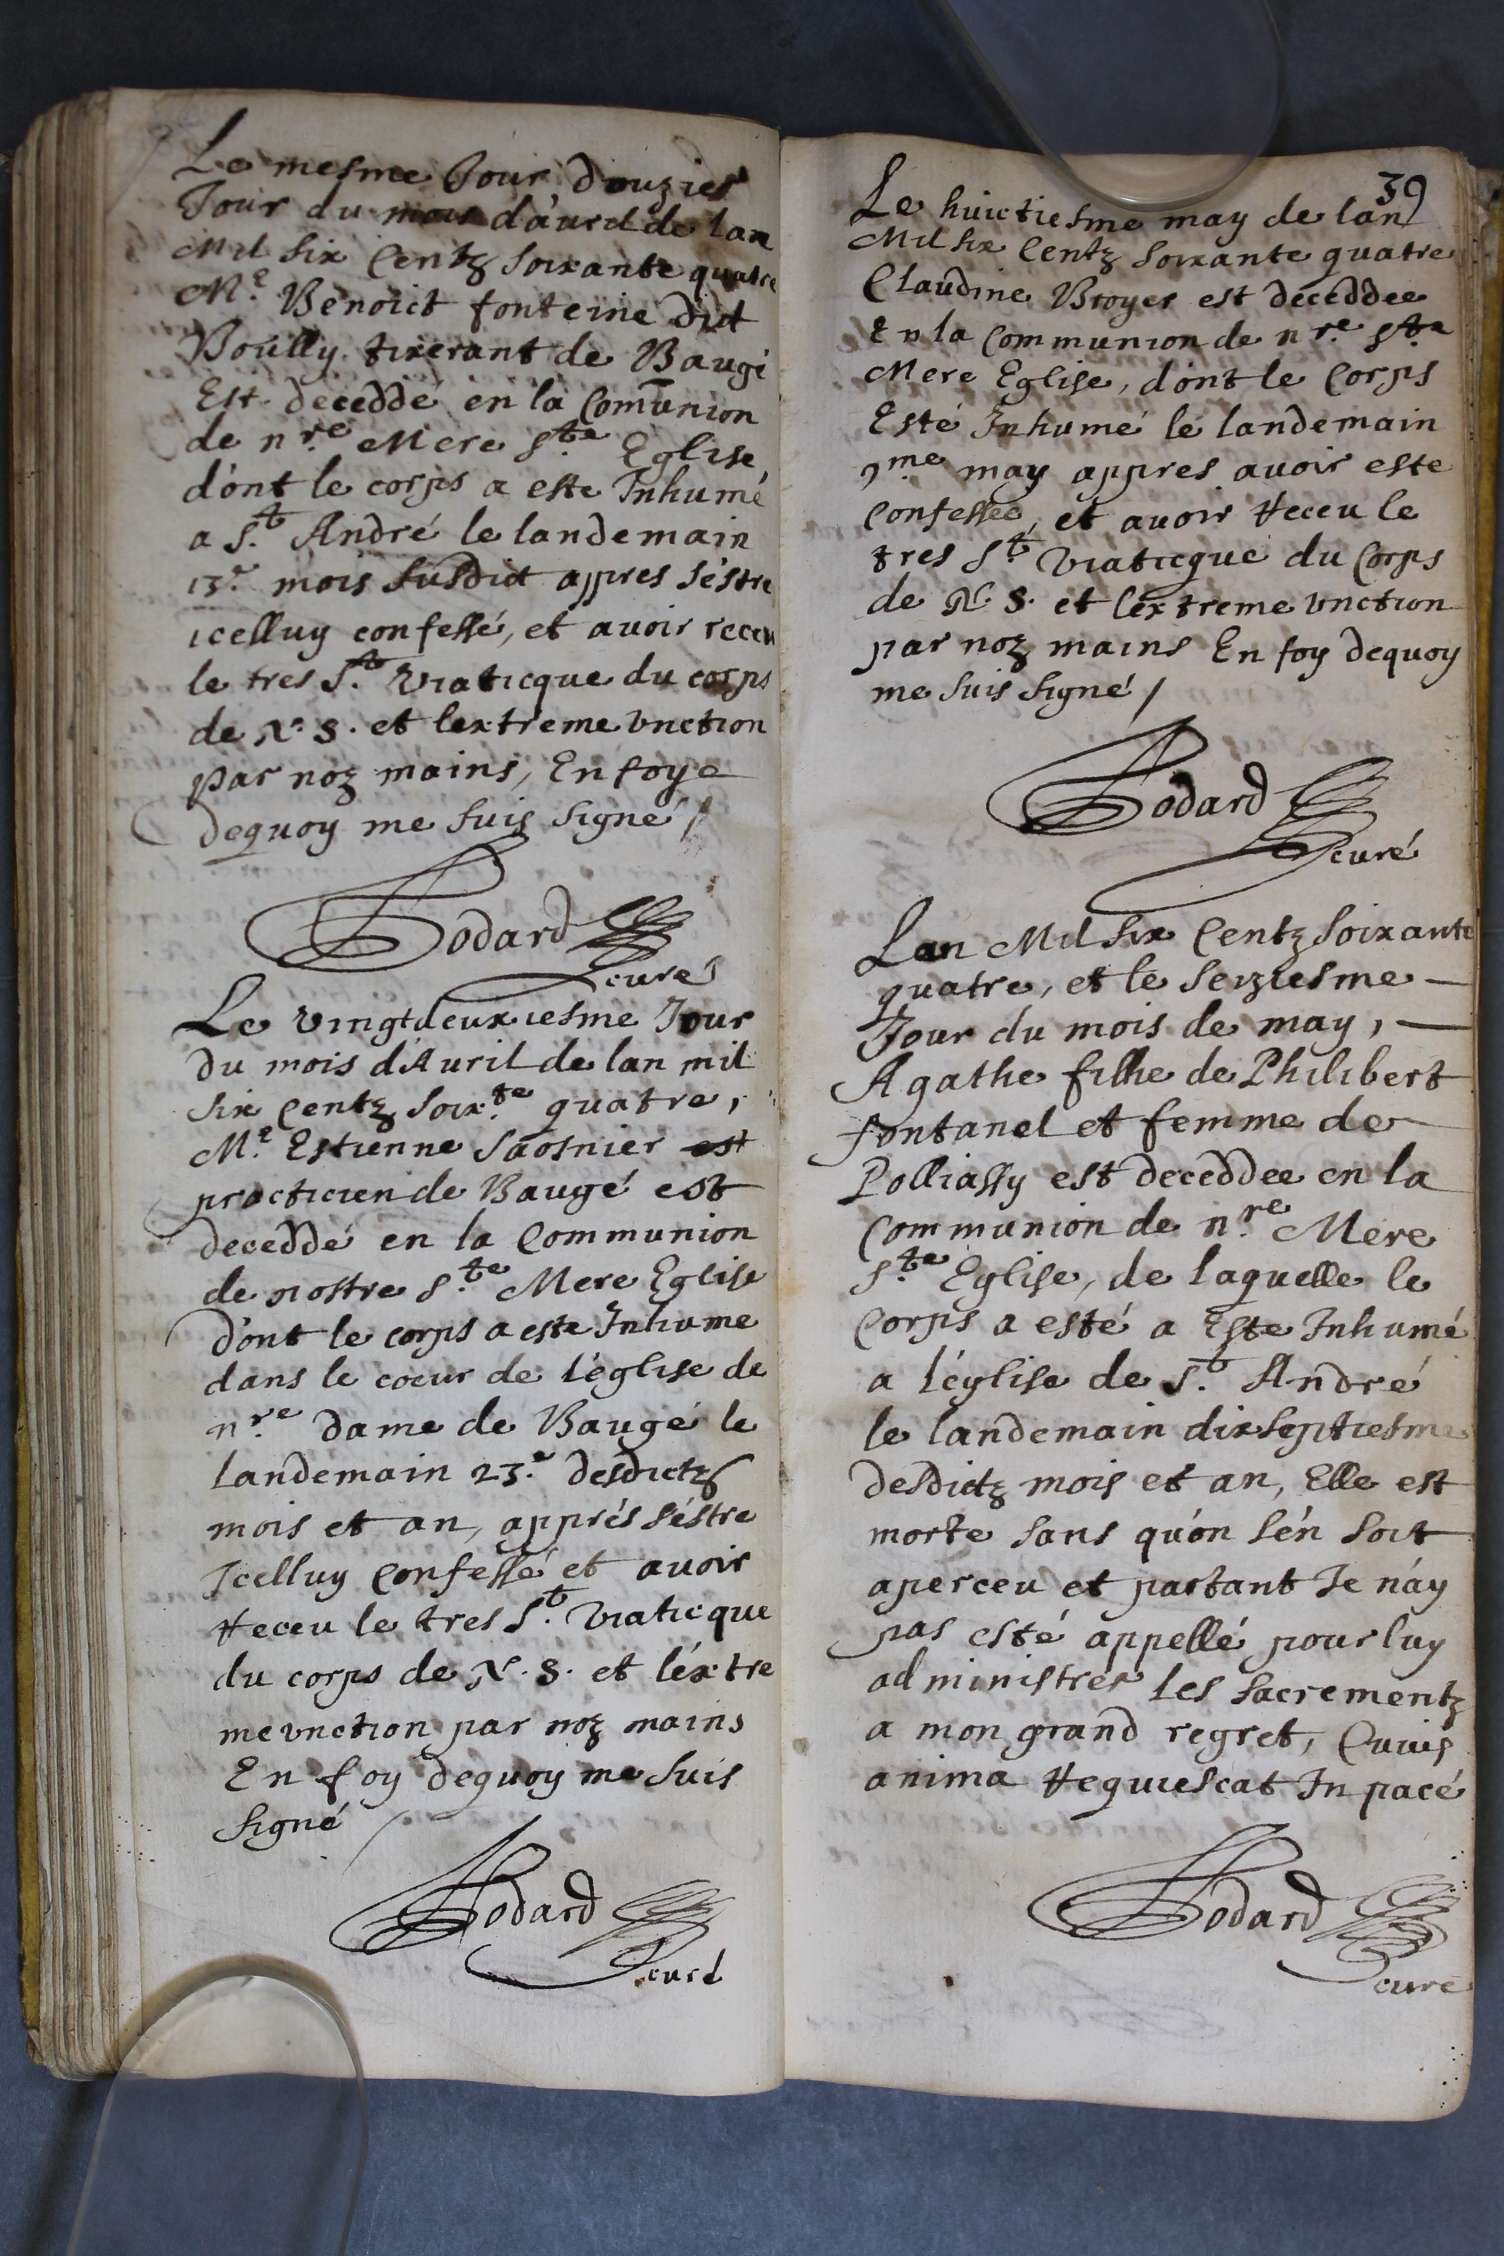 Le mesme Jour douzies
Jour du mois d'auril de lan
Mil six Centz soixante quatre
Mʳ. Benoict fonteine dict
Boully tixerant de Baugé
Est deceddé en la Com̄union
de nʳᵉ. Mere Sᵗᵉ. Eglise,
dónt le corps a este Inhumé
a Sᵗ. André le landemain
13ᵉ. mois susdict appres séstre
icelluy confessé, et avoir receu
le tres Sᵗ. Viaticque du corps
de N. S. et lextreme vnction
par noz mains, En foye
dequoy me suis signé /
Bodard
curé
Le vingtdeuxiesme Jour
du mois d'Auril de lan mil
six Centz soixᵗᵉ. quatre,
Mʳ. Estienne Saosnier est
practicien de Baugé est
deceddé en la Communion
de nostre Sᵗᵉ. Mere Eglise
dónt le corps a este Inhume
dans le coeur de léglise de
nʳᵉ. dame de Baugé le
landemain 23ᵉ. desdictz
mois et an, apprés séstre
Icelluy Confessé et auoir
Receu le tres Sᵗ. Viaticque
du corps de N. S. et léxtre
me vnction par noz mains
En foy dequoy me suis
signé /
Bodard
curé
39
Le huictiesme may de lan
Mil six Centz soixante quatre
Claudine Broyer est deceddee
En la Communion de nʳᵉ. Sᵗᵉ
Mere Eglise, dónt le Corps
Esté Inhumé le landemain
9ᵐᵉ may appres avoir este
Confessée, et avoir Receu le
tres Sᵗ. Viaticque du Corps
de N. S. et lextreme vnction
par noz mains En foy dequoy
me suis signé /
Bodard
curé
Lan Mil six Centz soixante
quatre, et le seiziesme —
Jour du mois de may, —
Agathe fillie de Philibert
fontanel et femme de
Polliassy est deceddee en la
Communion de nʳᵉ. Mere
Sᵗᵉ. Eglise, de laquelle le
Corps a esté a Este Inhumé
a léglise de Sᵗ. André
le landemain dixseptiesme
desdictz mois et an, Elle est
morte sans quón sén soit
aperceu et partant Je náy
pas esté appellé pour luy
administrer les sacrementz
a mon grand regret, Cuius
anima Requiescat In pacé
Bodard
curé